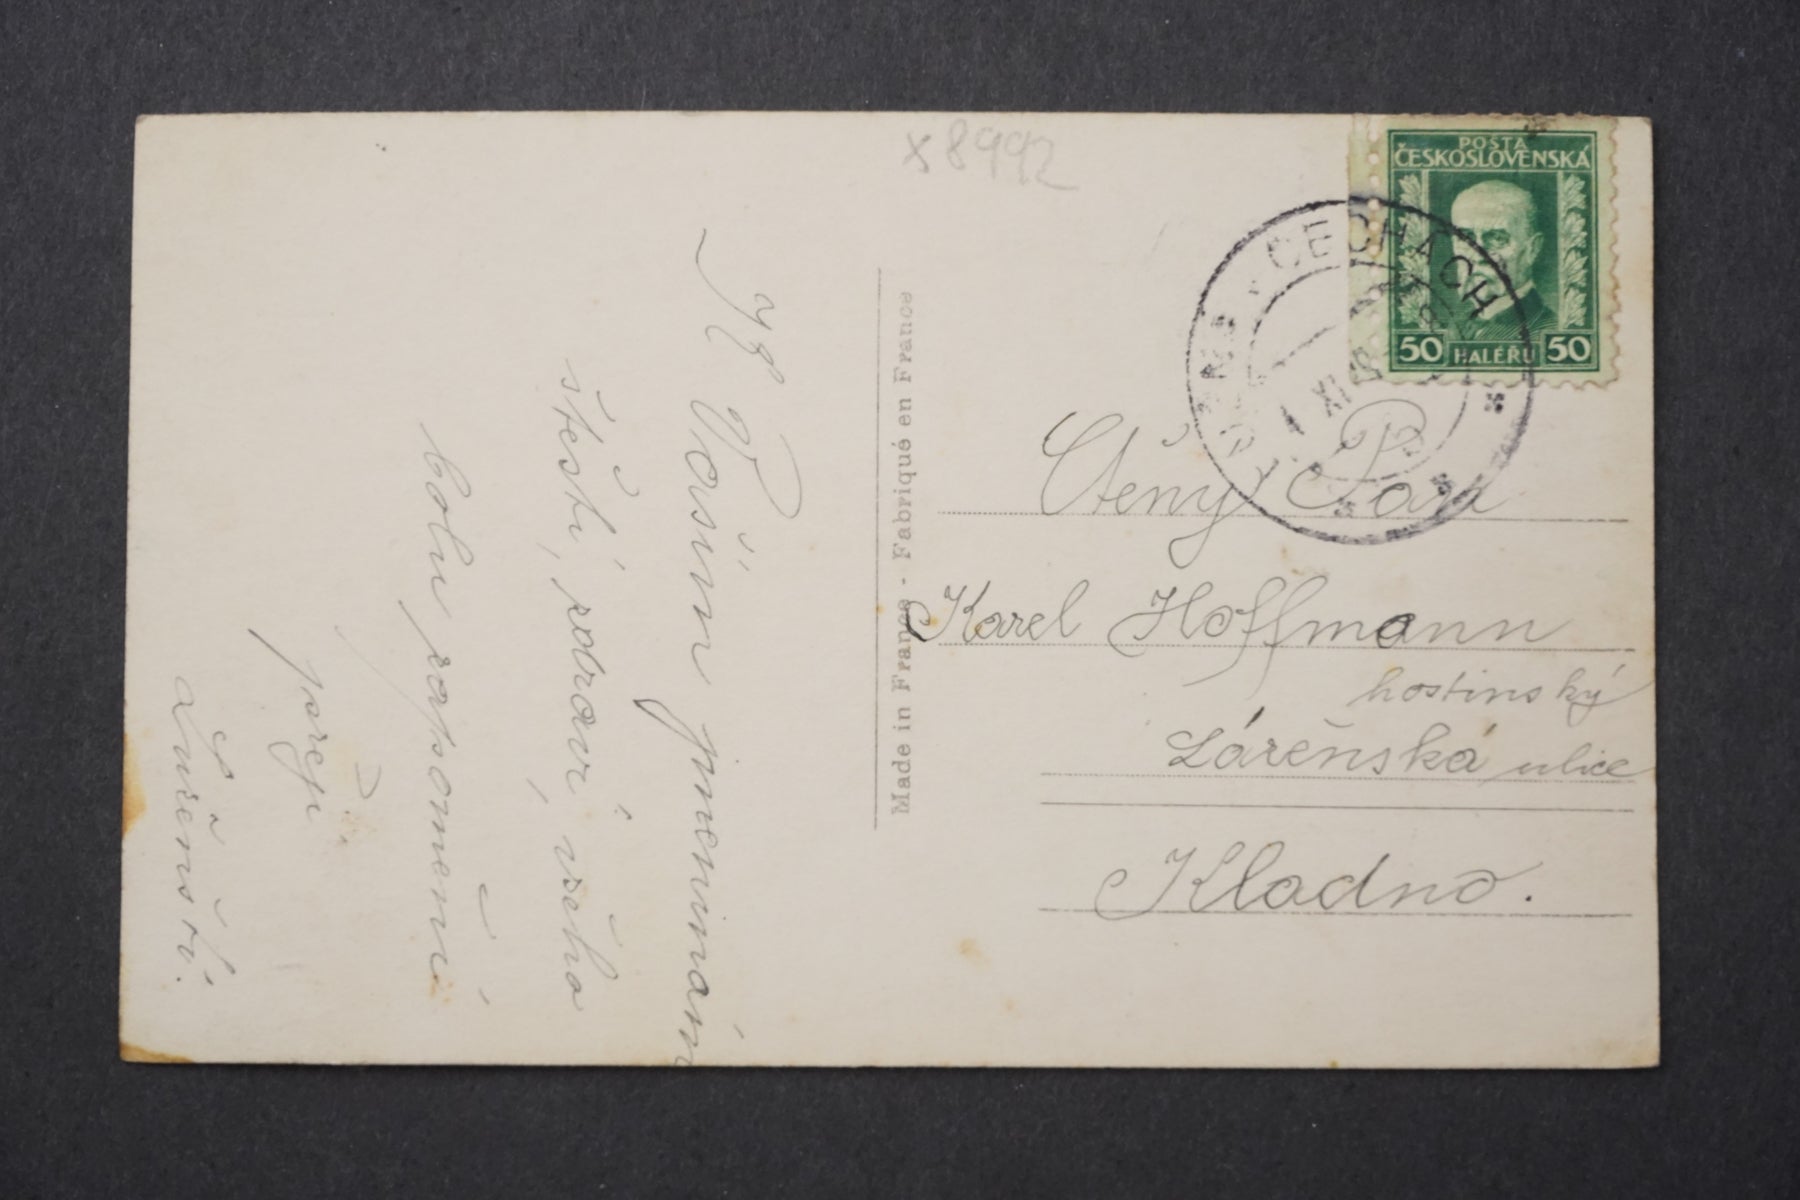 x 8992
POŠTA
ČESKOSLOVENSKÁ
50 HALÉŘŮ 50
V ČECHÁCH
XI
Made in France - Fabriqué en France
Ctěný Pan
Karel Hoffmann
hostinský
Lázeňská ulice
Kladno.
K Vašim jmeninám
štěstí, zdraví, všeho
přeje